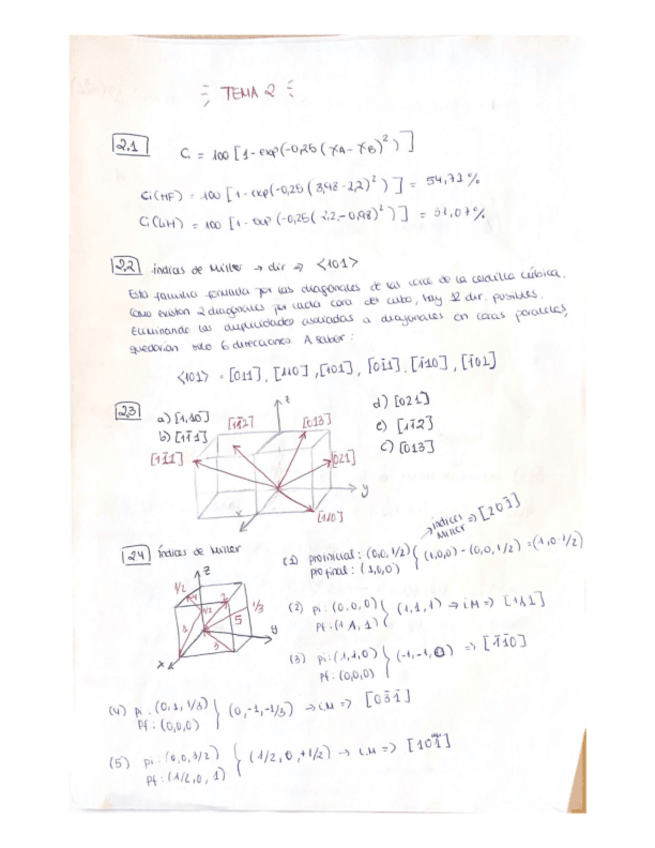 TEMA 2
2.1 Ci = 100 [1-exp(-0,25 (XA - XB)²)]
Ci(HF) = 100 [1-exp(-0,25 (3,98-2,2)²)] = 54,71 %
Ci(LiH) = 100 [1-exp (-0,25 (2,2-0,98)²)] = 31,07%
2.2 índices de Miller → dir ⇒ <101>
Esta familia formada por las diagonales de las caras de la celdilla cúbica.
Como existen 2 diagonales por cada cara del cubo, hay 12 dir. posibles.
Eliminando las duplicidades asociadas a diagonales en caras paralelas,
quedarían solo 6 direcciones. A saber:
<101> = [011], [110], [101], [01̄1], [1̄10], [1̄01]
2.3 a) [1,10]
b) [11̄1]
d) [021]
e) [11̄2]
c) [013]
z
[11̄2]
[013]
[11̄1]
[021]
y
x
[110]
2.4 Índices de Miller
(1) pto inicial: (0,0,1/2)
pto final: (1,0,0)
(1,0,0) - (0,0,1/2) = (1,0-1/2)
→ índices Miller ⇒ [201̄]
z
1/2
1/3
5
y
x
(2) pi: (0,0,0)
Pf: (1,1,1)
(1,1,1) → i.M ⇒ [111]
(3) pi: (1,1,0)
Pf: (0,0,0)
(-1,-1,0) ⇒ [1̄1̄0]
(4) pi: (0,1,1/3)
Pf: (0,0,0)
(0,-1,-1/3) → i.M ⇒ [03̄1̄]
(5) pi: (0,0,1/2)
Pf: (1/2,0,1)
(1/2,0,+1/2) → i.M ⇒